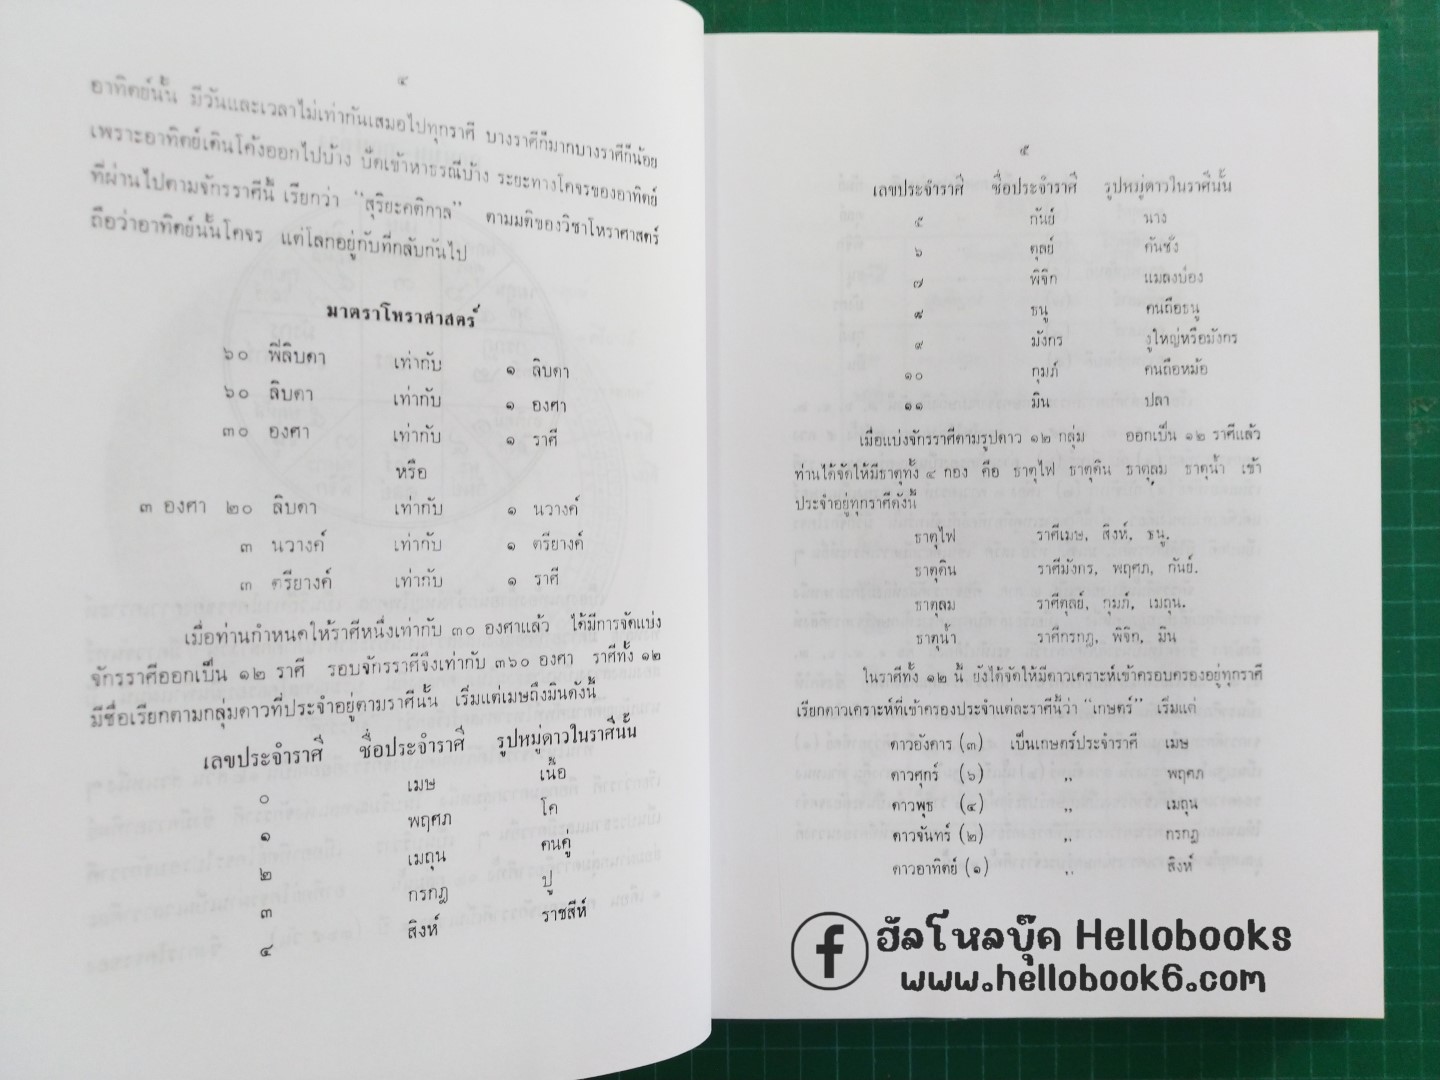 ๔
อาทิตย์นั้น มีวันและเวลาไม่เท่ากันเสมอไปทุกราศี บางราศีก็มากบางราศีก็น้อย
เพราะอาทิตย์เดินโค้งออกไปบ้าง ปัดเข้าหาธรณีบ้าง ระยะทางโคจรของอาทิตย์
ที่ผ่านไปตามจักรราศีนี้ เรียกว่า "สุริยะคติกาล" ตามมติของวิชาโหราศาสตร์
ถือว่าอาทิตย์นั้นโคจร แต่โลกอยู่กับที่กลับกันไป
มาตราโหราศาสตร์
๖๐ ฟิลิบดา เท่ากับ ๑ ลิบดา
๖๐ ลิบดา เท่ากับ ๑ องศา
๓๐ องศา เท่ากับ ๑ ราศี
หรือ
๓ องศา ๒๐ ลิบดา เท่ากับ ๑ นวางค์
๓ นวางค์ เท่ากับ ๑ ตรียางค์
๓ ตรียางค์ เท่ากับ ๑ ราศี
เมื่อท่านกำหนดให้ราศีหนึ่งเท่ากับ ๓๐ องศาแล้ว ได้มีการจัดแบ่ง
จักรราศีออกเป็น ๑๒ ราศี รอบจักรราศีจึงเท่ากับ ๓๖๐ องศา ราศีทั้ง ๑๒
มีชื่อเรียกตามกลุ่มดาวที่ประจำอยู่ตามราศีนั้น เริ่มแต่เมษถึงมินดังนี้
เลขประจำราศี ชื่อประจำราศี รูปหมู่ดาวในราศีนั้น
๐ เมษ เนื้อ
๑ พฤศภ โค
๒ เมถุน คนคู่
๓ กรกฎ ปู
๔ สิงห์ ราชสีห์
๕
เลขประจำราศี ชื่อประจำราศี รูปหมู่ดาวในราศีนั้น
๕ กันย์ นาง
๖ ตุลย์ คันชั่ง
๗ พิจิก แมลงป่อง
๘ ธนู คนถือธนู
๙ มังกร งูใหญ่หรือมังกร
๑๐ กุมภ์ คนถือหม้อ
๑๑ มิน ปลา
เมื่อแบ่งจักรราศีตามรูปดาว ๑๒ กลุ่ม ออกเป็น ๑๒ ราศีแล้ว
ท่านได้จัดให้มีธาตุทั้ง ๔ กอง คือ ธาตุไฟ ธาตุดิน ธาตุลม ธาตุน้ำ เข้า
ประจำอยู่ทุกราศีดังนี้
ธาตุไฟ ราศีเมษ, สิงห์, ธนู.
ธาตุดิน ราศีมังกร, พฤศภ, กันย์.
ธาตุลม ราศีตุลย์, กุมภ์, เมถุน.
ธาตุน้ำ ราศีกรกฎ, พิจิก, มิน
ในราศีทั้ง ๑๒ นี้ ยังได้จัดให้มีดาวเคราะห์เข้าครอบครองอยู่ทุกราศี
เรียกดาวเคราะห์ที่เข้าครองประจำแต่ละราศีนี้ว่า "เกษตร์" เริ่มแต่
ดาวอังคาร (๓) เป็นเกษตร์ประจำราศี เมษ
ดาวศุกร์ (๖) ,, พฤศภ
ดาวพุธ (๔) ,, เมถุน
ดาวจันทร์ (๒) ,, กรกฎ
ดาวอาทิตย์ (๑) ,, สิงห์
ฮัลโหลบุ๊ค Hellobooks
www.hellobook6.com